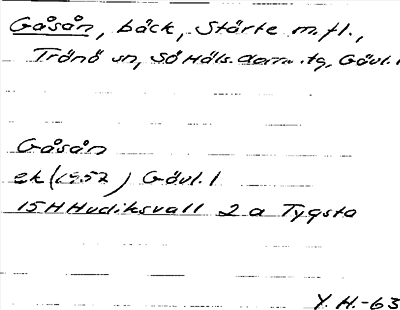 Gåsån, bäck, Stärte m.fl.,
Trönö sn, Sö Häls. doms.tg, Gävl.l
Gåsån
ek (1952) Gävl.l
15H Hudiksvall 2a Tygsta
Y.H.-63